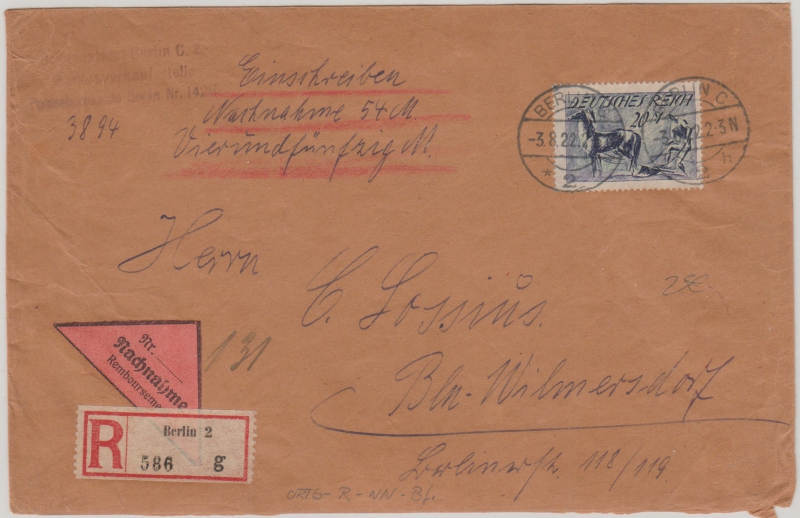 Berlin C. 2
3894
Einschreiben
Nachnahme 54 M.
Vierundfünfzig M.
DEUTSCHES REICH
20 M
BERLIN C
-3.8.22
2-3 N
* 2
h
Herrn
C. Lossius.
Bln-Wilmersdorf
Berlinerstr. 118/119.
25€-
131
Nr.
Nachnahme
Remboursement
R
Berlin 2
586 g
ORTG-R-NN-Bf.